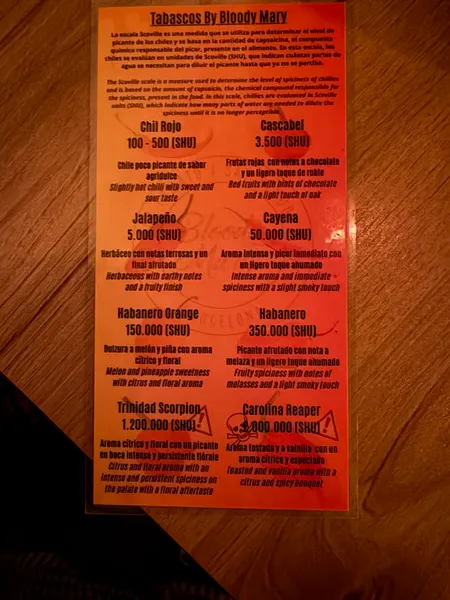 Tabascos By Bloody Mary
La escala Scoville es una medida que se utiliza para determinar el nivel de
picante de los chiles y se basa en la cantidad de capsaicina, el compuesto
químico responsable del picor, presente en el alimento. En esta escala, los
chiles se evalúan en unidades de Scoville (SHU), que indican cuántas partes de
agua se necesitan para diluir el picante hasta que ya no se perciba.
The Scoville scale is a measure used to determine the level of spiciness of chillies
and is based on the amount of capsaicin, the chemical compound responsible for
the spiciness, present in the food. In this scale, chillies are evaluated in Scoville
units (SHU), which indicate how many parts of water are needed to dilute the
spiciness until it is no longer perceptible.
Chil Rojo
100 - 500 (SHU)
Chile poco picante de sabor
agridulce
Slightly hot chilli with sweet and
sour taste
Cascabel
3.500 (SHU)
Frutas rojas con notas a chocolate
y un ligero toque de roble
Red fruits with hints of chocolate
and a light touch of oak
Jalapeño
5.000 (SHU)
Herbáceo con notas terrosas y un
final afrutado
Herbaceous with earthy notes
and a fruity finish
Cayena
50.000 (SHU)
Aroma intenso y picor inmediato con
un ligero toque ahumado
Intense aroma and immediate
spiciness with a slight smoky touch
Habanero Orange
150.000 (SHU)
Dulzura a melón y piña con aroma
cítrico y floral
Melon and pineapple sweetness
with citrus and floral aroma
Habanero
350.000 (SHU)
Picante afrutado con nota a
melaza y un ligero toque ahumado
Fruity spiciness with notes of
molasses and a light smoky touch
Trinidad Scorpion
1.200.000 (SHU)
Aroma cítrico y floral con un picante
en boca intenso y persistente
Citrus and floral aroma with an
intense and persistent spiciness on
the palate with a floral aftertaste
Carolina Reaper
(SHU)
Aroma tostada y a vainilla con un
aroma cítrico y especiado
Toasted and vanilla aroma with a
citrus and spicy bouquet